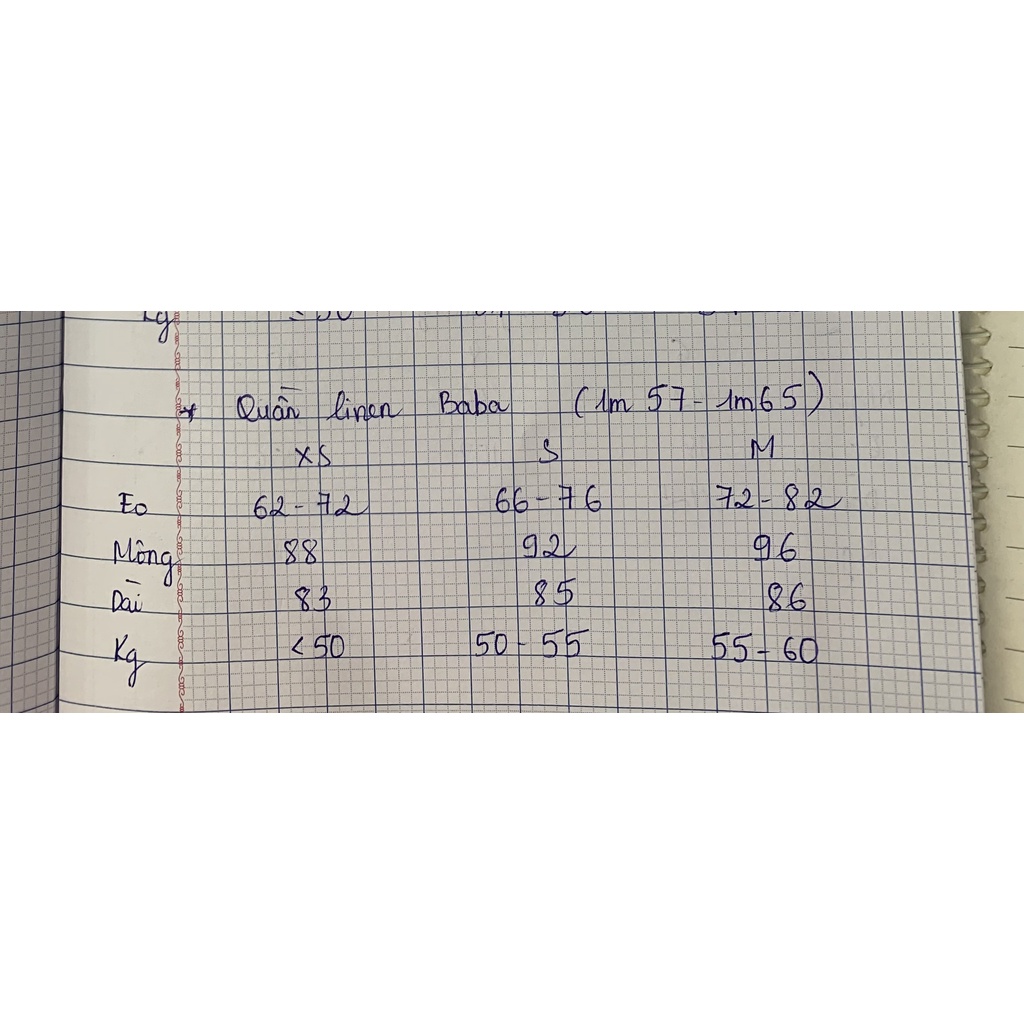 * Quần linen Baba (1m 57 - 1m65)
XS S M
Eo 62 - 72 66 - 76 72 - 82
Mông 88 92 96
Dài 83 85 86
Kg < 50 50 - 55 55 - 60